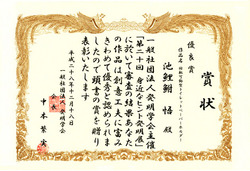 賞状
優良賞
池鯉鮒 悟 殿
一般社団法人発明学会主催
「第二十回 身近なヒント発明展」
において審査の結果あなた
の作品は創意工夫に富み
きわめて優秀と認められま
したので頭書の賞を贈り
表彰いたします
平成二十八年十二月十八日
一般社団法人 発明学会
会長 中本繁実